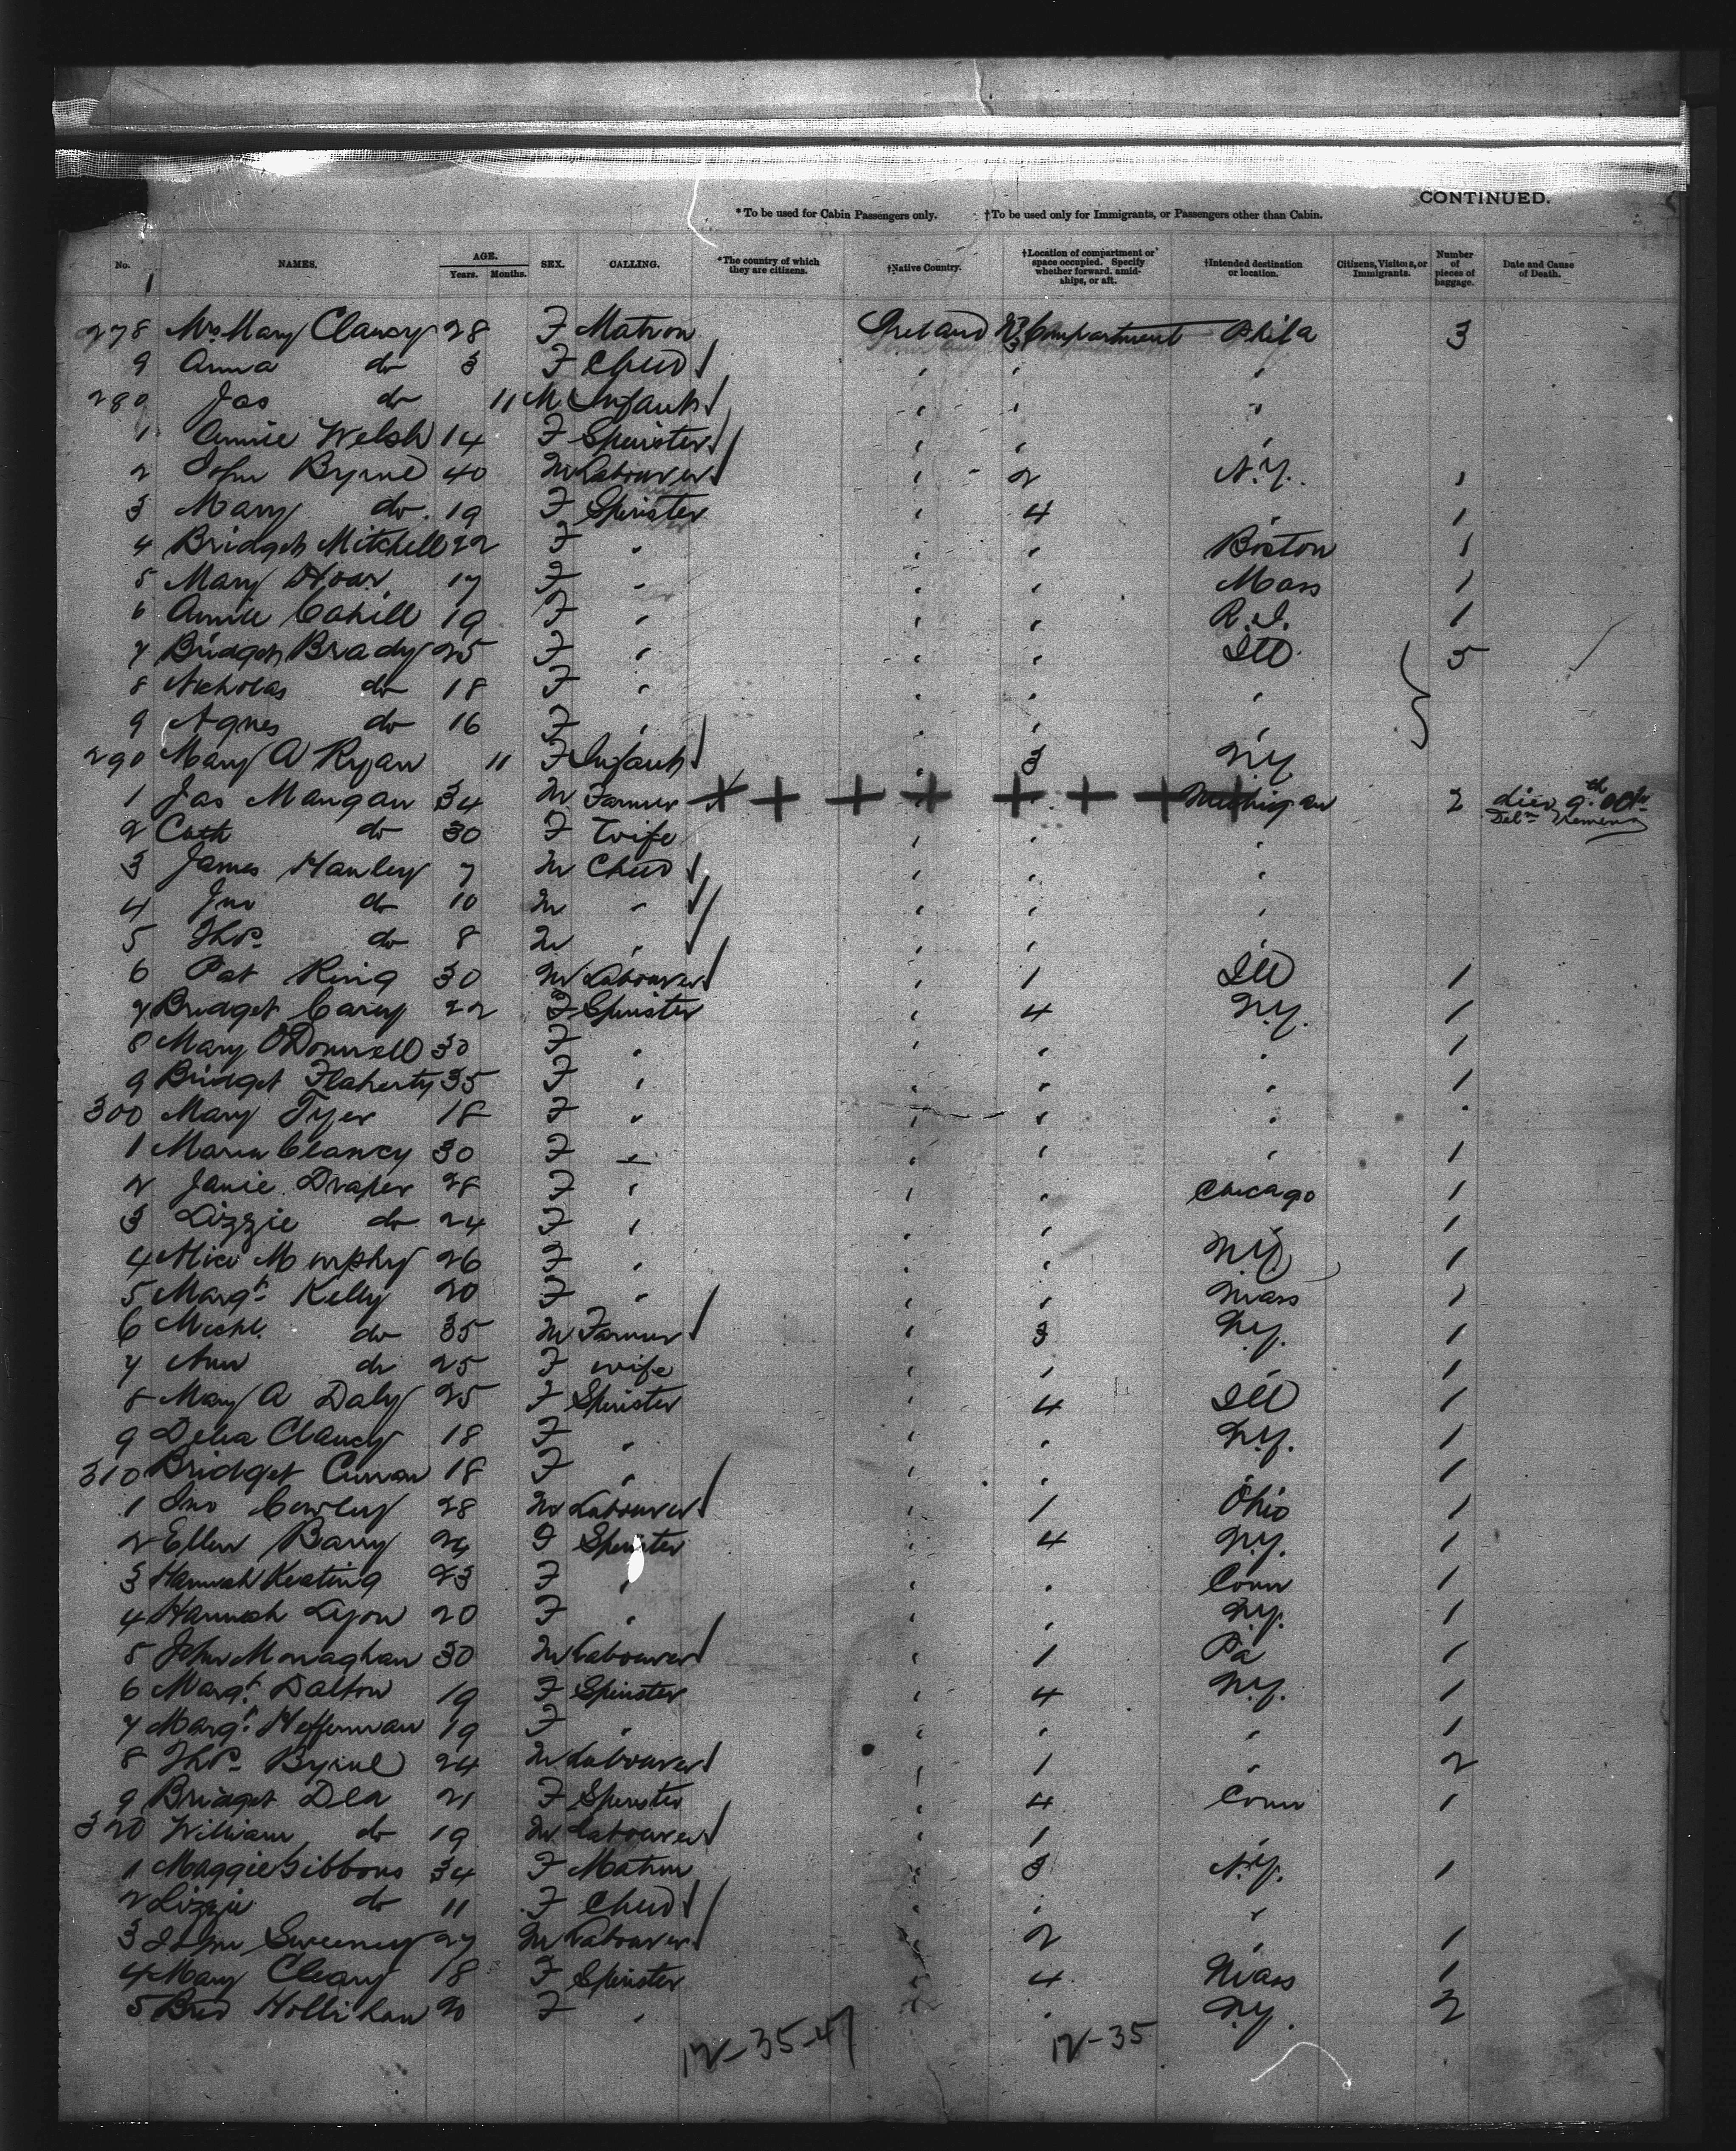 CONTINUED.
*To be used for Cabin Passengers only. †To be used only for Immigrants, or Passengers other than Cabin.
No. NAMES. AGE. Years. Months. SEX. CALLING. *The country of which they are citizens. †Native Country. †Location of compartment or space occupied. Specify whether forward, amidships, or aft. †Intended destination or location. Citizens, Visitors, or Immigrants. Number of pieces of baggage. Date and Cause of Death.
1
278 Mrs Mary Clancy 28 F Matron Ireland No 3 Compartment Phila 3
9 Anna do 3 F Child " " "
280 Jas do 11 M Infant " " "
1 Annie Welsh 14 F Spinster " " "
2 John Byrne 40 M Labourer " 2 N.Y. 1
3 Mary do. 19 F Spinster " 4 " 1
4 Bridget Mitchell 22 F " " " Boston 1
5 Mary Hoar 17 F " " " Mass 1
6 Annie Cahill 19 F " " " R.I. 1
7 Bridget Brady 25 F " " " Ill. 5
8 Nicholas do 18 F " " " "
9 Agnes do 16 F " " "
290 Mary A Ryan 11 F Infant " 3 N.Y.
1 Jas Mangan 34 M Farmer " " Michigan 2 died 9th Octr
2 Cath do 30 F Wife " " " Delm Tremens
3 James Hanley 7 M Child " " "
4 Jno do 10 M " " " "
5 Thos. do 8 M " " " "
6 Pat Ring 30 M Labourer " 1 Ill 1
7 Bridget Carey 22 F Spinster " 4 N.Y. 1
8 Mary O'Donnell 30 F " " " " 1
9 Bridget Flaherty 35 F " " " " 1
300 Mary Tyer 18 F " " " " "
1 Maria Clancy 30 F " " " " 1
2 Janie Draper 28 F " " " Chicago 1
3 Lizzie do 24 F " " " " 1
4 Alice Murphy 26 F " " " N.Y. 1
5 Margt. Kelly 20 F " " " Mass 1
6 Michl. do 35 M Farmer " 3 N.Y. 1
7 Ann do 25 F wife " " " 1
8 Mary A Daly 25 F Spinster " 4 Ill 1
9 Delia Clancy 18 F " " " N.Y. 1
310 Bridget Curran 18 F " " " " 1
1 Jno Cowley 28 M Labourer " 1 Ohio 1
2 Ellen Barry 24 F Spinster " 4 N.Y. 1
3 Hannah Keating 23 F " " " Conn 1
4 Hannah Lyon 20 F " " " N.Y. 1
5 John Monaghan 30 M Labourer " 1 Pa 1
6 Margt. Dalton 19 F Spinster " 4 N.Y. 1
7 Margt. Heffernan 19 F " " " " 1
8 Thos. Byrne 24 M Labourer " 1 " 2
9 Bridget Dea 21 F Spinster " 4 Conn 1
320 William do 19 M Labourer " 1 "
1 Maggie Gibbons 34 F Matron " 3 N.Y. 1
2 Lizzie do 11 F Child " " "
3 John Sweeney 27 M Labourer " 2 " 1
4 Mary Cleary 18 F Spinster " 4 Mass 1
5 Brid Hollihan 20 F " " " N.Y. 2
12-35-47 12-35